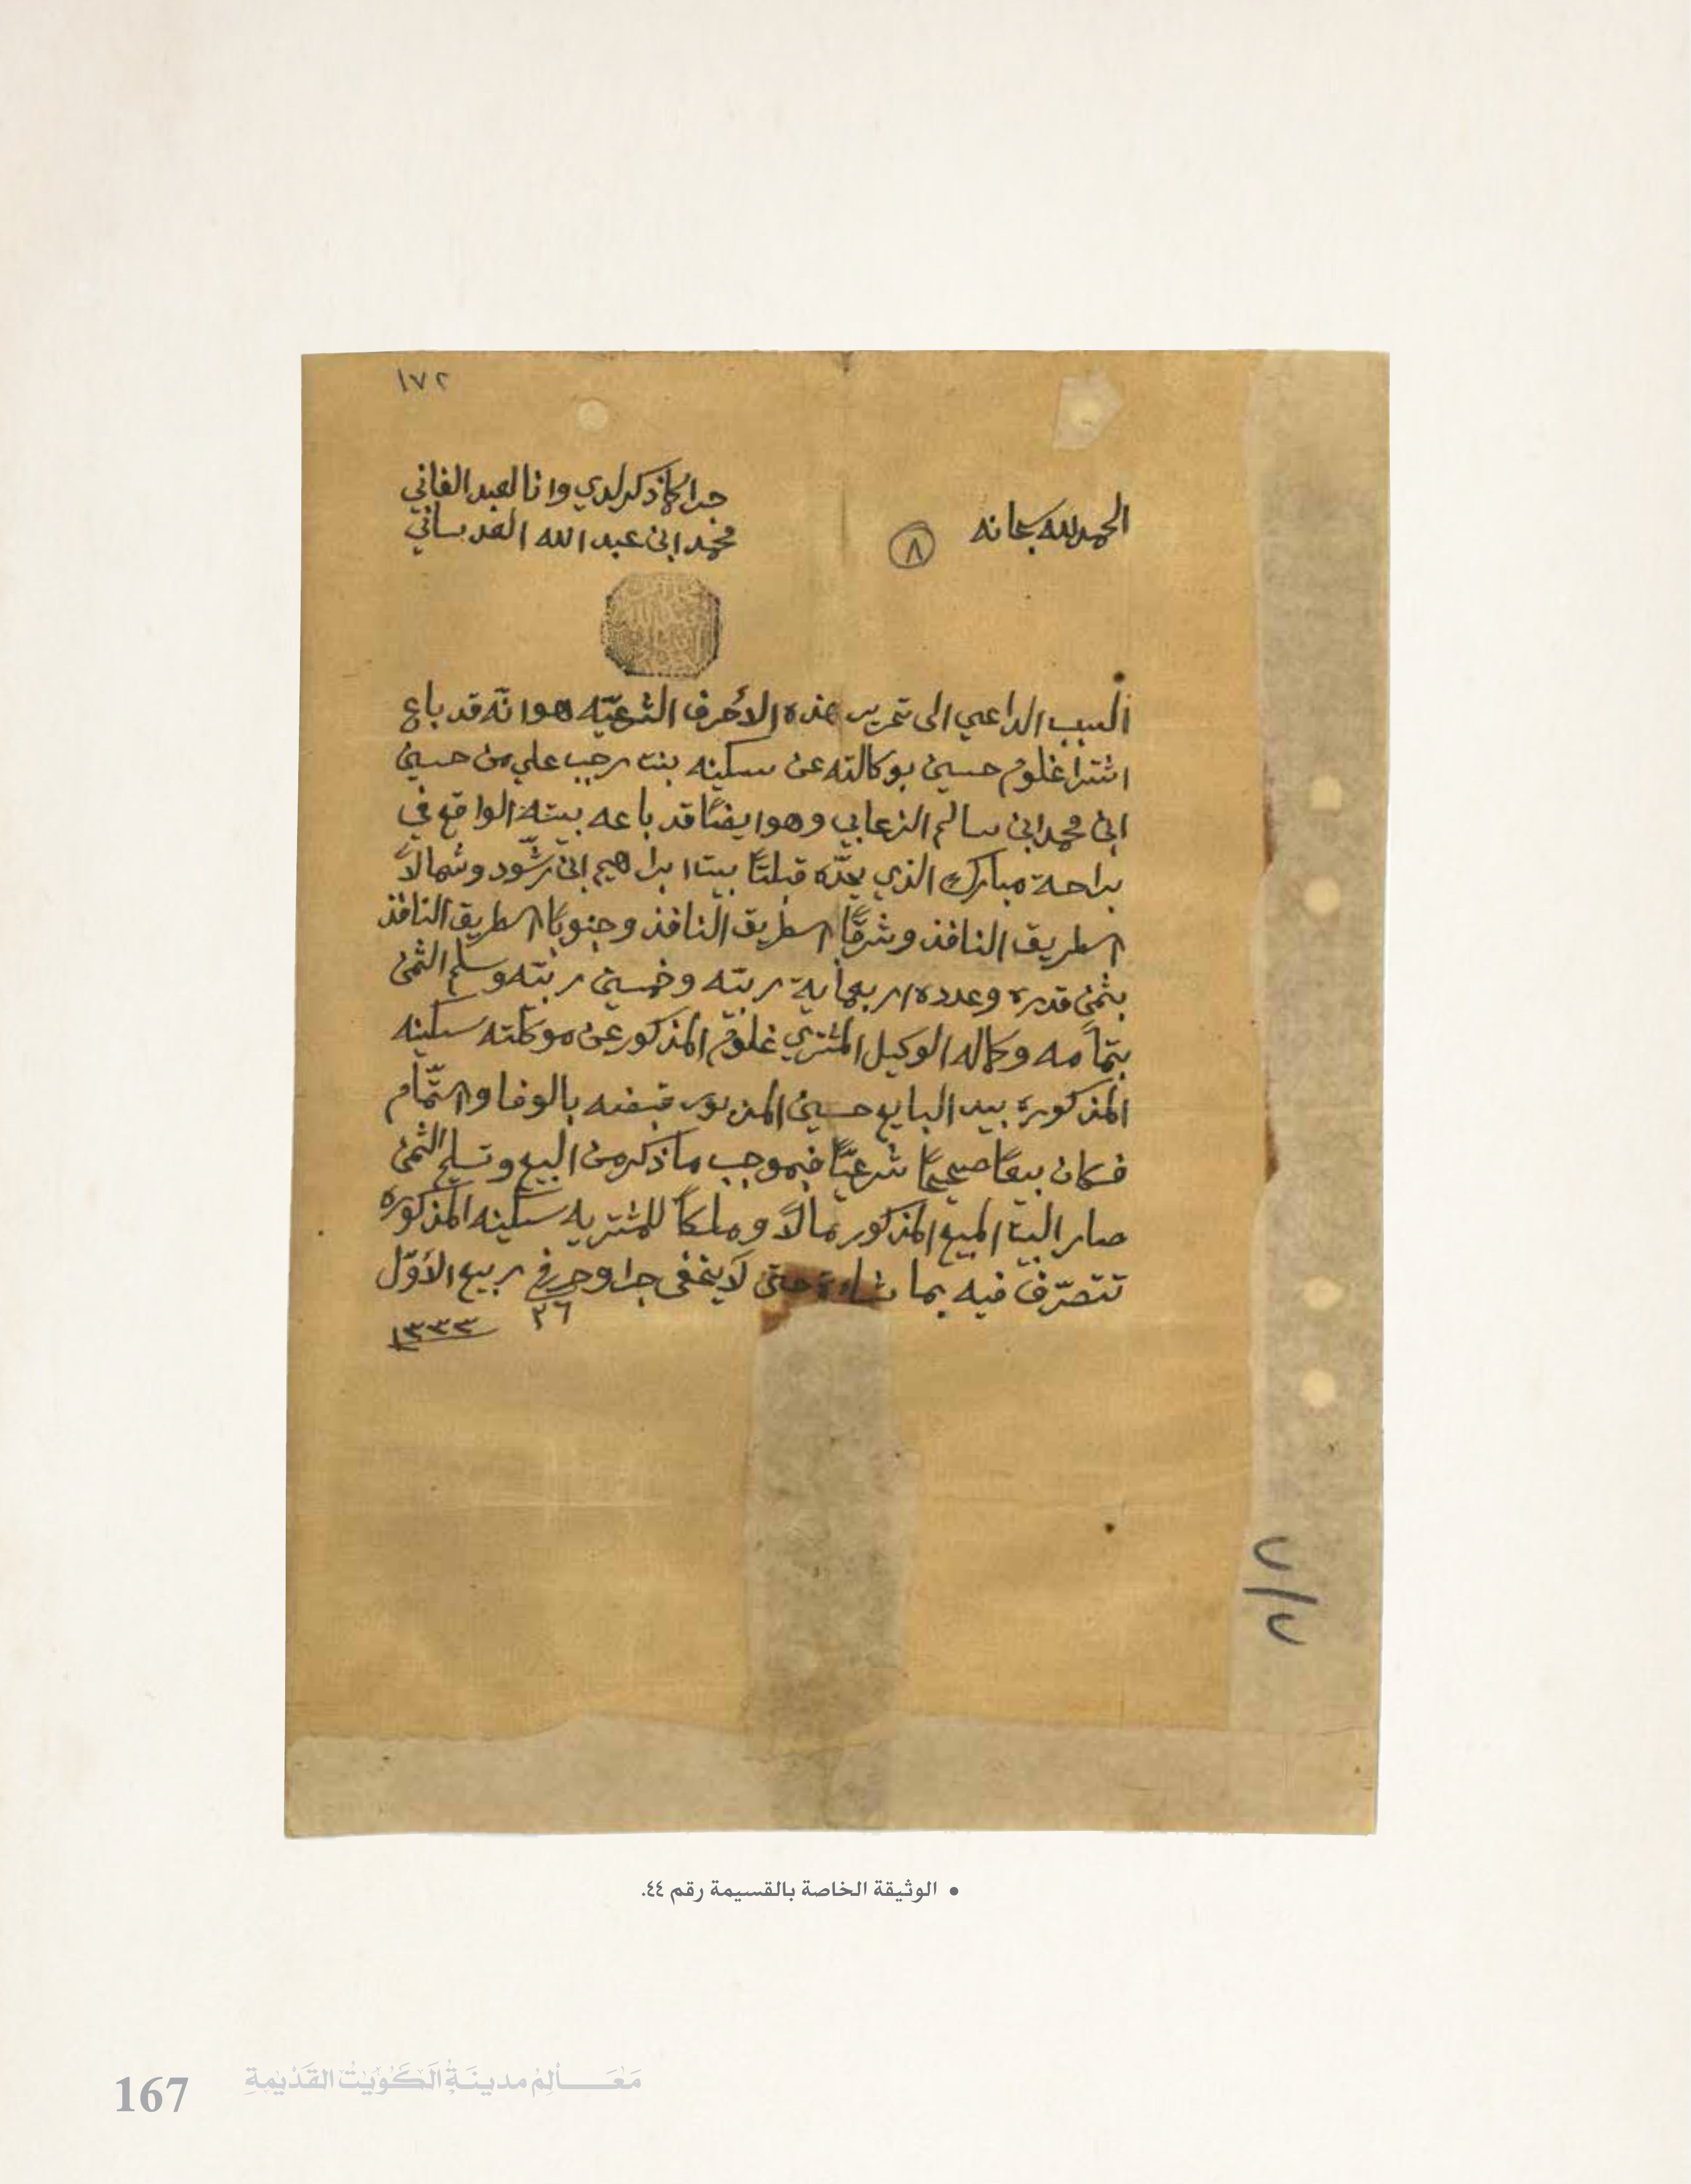 ١٧٢
الحمد لله سبحانه
٨
جرا كما ذكر لدي وانا العبد الفاني
محمد ابن عبد الله العدساني
السبب الداعي الى تحرير هذه الاحرف الشرعيّه هو انّه قد باع
اشترا غلوم حسين بوكالته عن سكينه بنت رجب علي من حسين
ابن محمد ابن سالم الزعابي وهو ايضًا قد باعه بيته الواقع في
براحة مبارك الذي يحدّه قبلتًا بيت ابراهيم ابن رشّود وشمالاً
الطريق النافذ وشرقًا الطريق النافذ وجنوبًا الطريق النافذ
بثمن قدره وعدده اربعماية ربيّه وخمسين ربيّه وسلم الثمن
بتمامه وكماله الوكيل المشتري غلوم المذكور عن موكلته سكينه
المذكورة بيد البايع حسين المزبور قبضه بالوفا والتّمام
فكان بيعًا صحيحًا شرعيًّا فبموجب ما ذكر من البيع وتسليم الثمن
صار البيت المبيع المذكور مالاً وملكًا للمشتريه سكينه المذكوره
تتصرّف فيه بما شاءت حتى لا يخفى جرا وحرر في ربيع الأوّل
٢٦
١٣٣٣
٧/٧
• الوثيقة الخاصة بالقسيمة رقم ٤٤.
167
مَعَـالِمْ مدينَةُ الكُوَيْتُ القَدْيمةِ